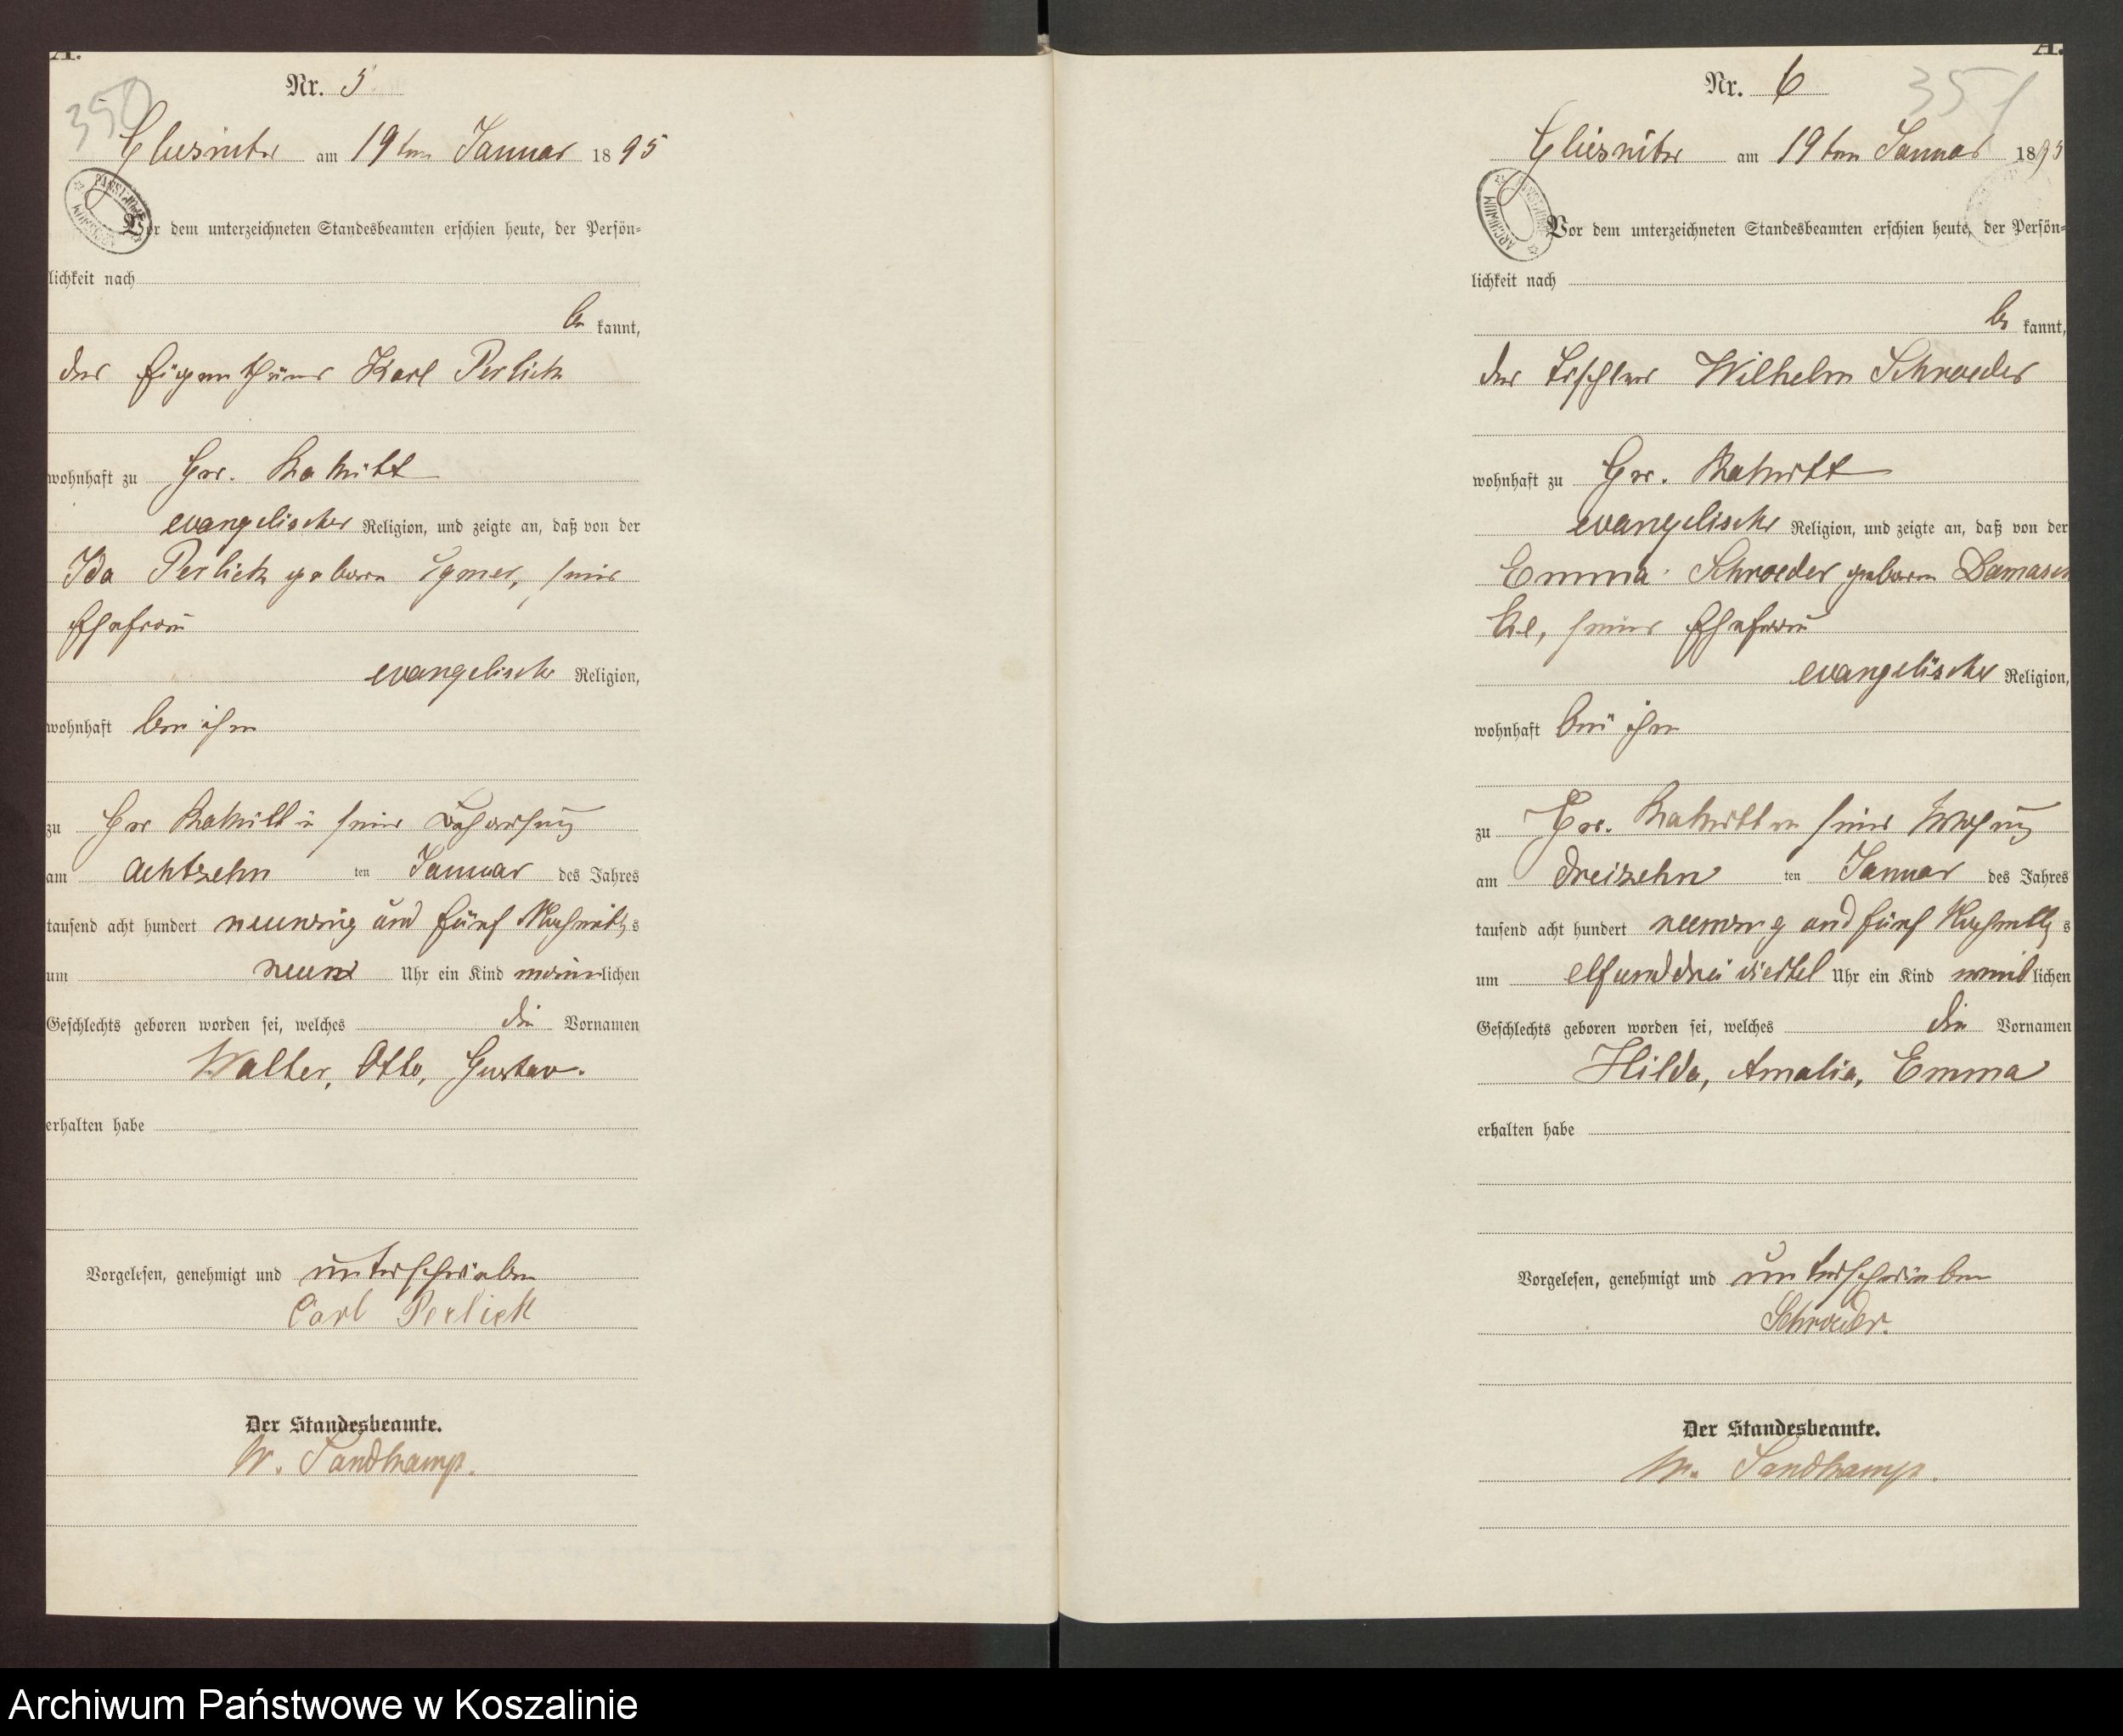 A.
Nr. 5
350
Gliesnitz am 19ten Januar 1895
Vor dem unterzeichneten Standesbeamten erschien heute, der Persön=
lichkeit nach
be kannt,
der Eigenthümer Karl Perlick
wohnhaft zu Gr. Rakitt
evangelischer Religion, und zeigte an, daß von der
Ida Perlick geboren seiner
Ehefrau
evangelischer Religion,
wohnhaft bei ihm
zu Gr Rakitt in seiner Behausung
am achtzehn ten Januar des Jahres
tausend acht hundert neunzig und fünf Nachmittgs
um neun Uhr ein Kind männlichen
Geschlechts geboren worden sei, welches die Vornamen
Walter, Otto, Gustav.
erhalten habe
Vorgelesen, genehmigt und unterschrieben
Carl Perlick
Der Standesbeamte.
W. Sandkamp.
A.
Nr. 6
351
Gliesnitz am 19ten Januar 1895
ARCHIWUM
Vor dem unterzeichneten Standesbeamten erschien heute, der Persön=
lichkeit nach
be kannt,
der Tischler Wilhelm Schroeder
wohnhaft zu Gr. Rakitt
evangelischer Religion, und zeigte an, daß von der
Emma Schroeder geboren Damasch
ke, seiner Ehefrau
evangelischer Religion,
wohnhaft bei ihm
zu Gr. Rakitt in seiner Wohnung
am dreizehn ten Januar des Jahres
tausend acht hundert neunzig und fünf Nachmittgs
um elf und drei viertel Uhr ein Kind weiblichen
Geschlechts geboren worden sei, welches die Vornamen
Hilda, Amalia, Emma
erhalten habe
Vorgelesen, genehmigt und unterschrieben
Schroeder.
Der Standesbeamte.
W. Sandkamp.
Archiwum Państwowe w Koszalinie